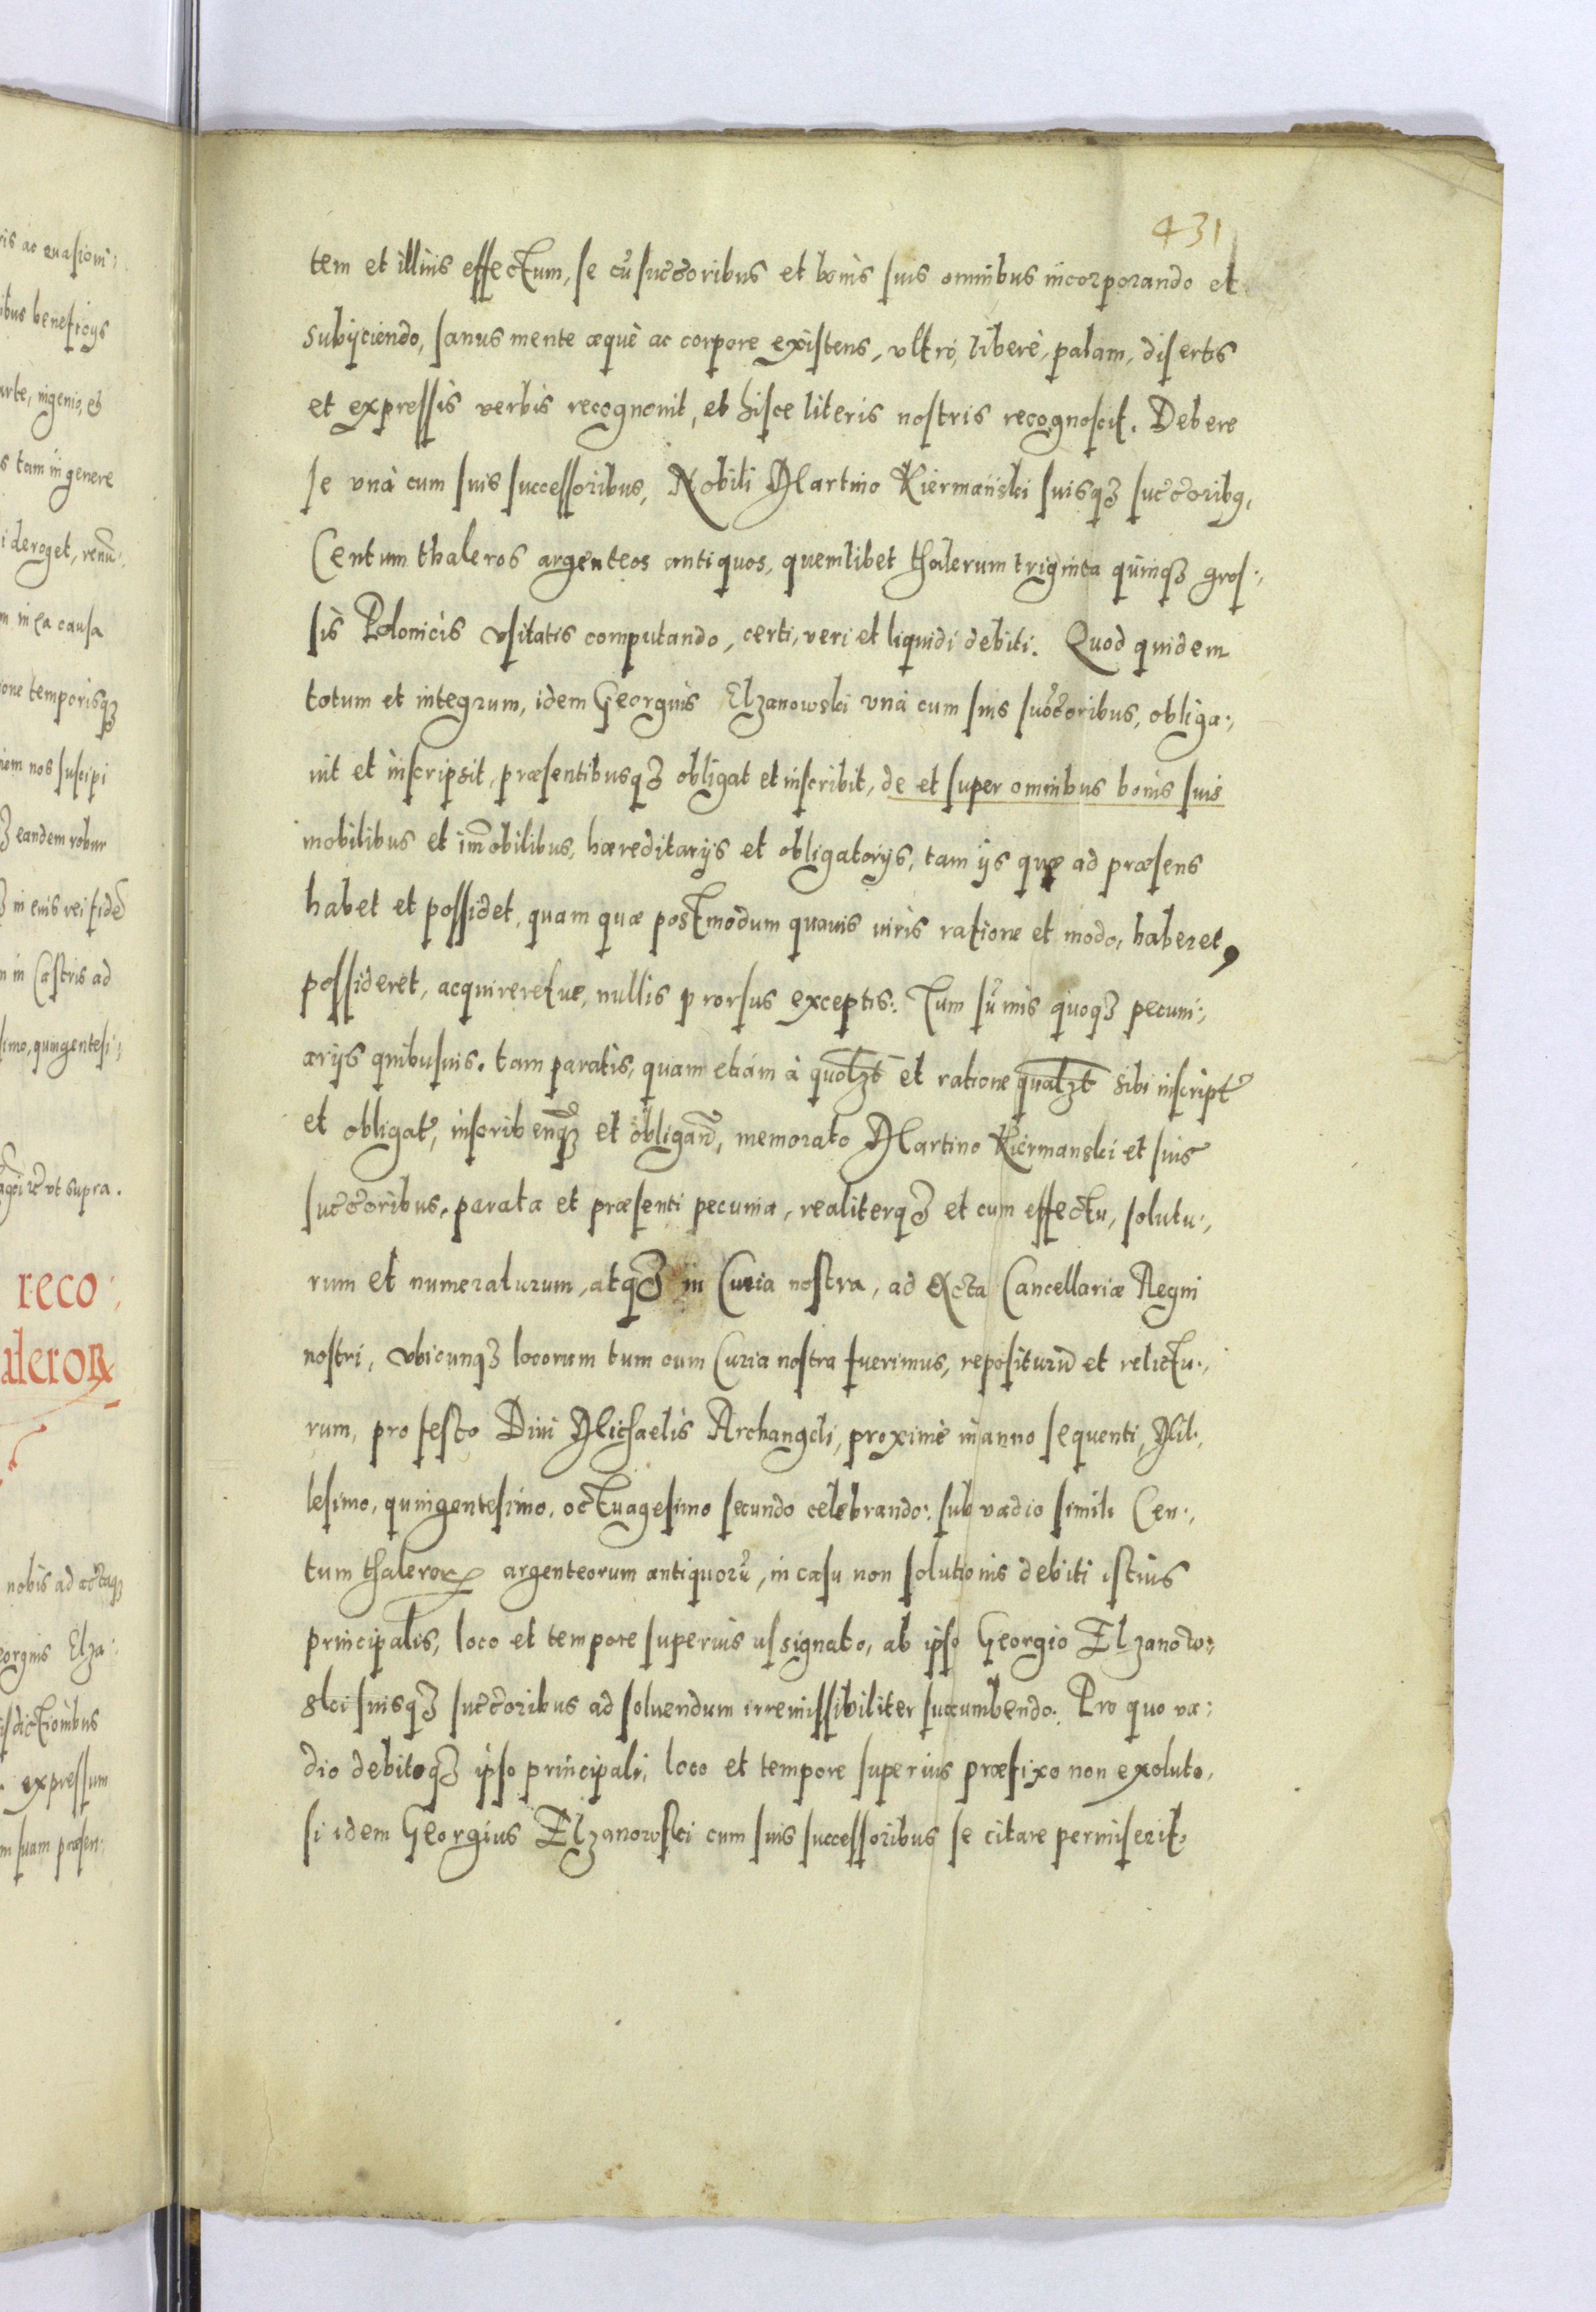 ris ac euasiom:
ibus beneficijs
arte, ingenio, et
s tam in genere
i deroget, renũ:
m in ea causa
ione temporisqꝫ
iem nos suscipi
ꝫ eandem robur
ꝫ in eius rei fidẽ
m in Castris ad
simo, quingentesi:
ut supra.
reco:
aleroꝝ
nobis ad actaqꝫ
eorgius Elza:
isdictionibus
expressum
m suam præsen:
431
tem et illius effectum, se cũ succ̃oribus et bonis suis omnibus incorporando et
subijciendo, sanus mente æquè ac corpore existens, vltrò, liberè, palam, disertis
et expressis verbis recognouit, et hisce literis nostris recognoscit. Debere
se vnà cum suis successoribus, Nobili Martino Kiermański suisqꝫ succ̃oribꝯ,
Centum thaleros argenteos antiquos, quemlibet thalerum triginta quinqꝫ gros:,
sis Polonicis vsitatis computando, certi, veri et liquidi debiti. Quod quidem
totum et integrum, idem Georgius Elzanowski vnà cum suis succ̃oribus, obliga:,
uit et inscripsit, præsentibusqꝫ obligat et inscribit, de et super omnibus bonis suis
mobilibus et im̃obilibus, hæreditarijs et obligatorijs, tam ijs quæ ad præsens
habet et possidet, quam quæ postmodum quauis iuris ratione et modo, haberet,
possideret, acquireretue, nullis prorsus exceptis: Tum sũmis quoqꝫ pecuni:,
arijs quibusuis, tam paratis, quam etiam à quolꝫt et ratione qualꝫt sibi inscript̃
et obligat̃, inscribenqꝫ̃ et obligañ, memorato Martino Kiermanski et suis
succ̃oribus, parata et præsenti pecunia, realiterqꝫ et cum effectu, solutu:,
rum et numeraturum, atqꝫ in Curia nostra, ad Acta Cancellariæ Regni
nostri, vbicunqꝫ locorum tum cum Curia nostra fuerimus, repositurũ et relictu:,
rum, pro festo Diui Michaelis Archangeli, proximè in anno sequenti, Mil:,
lesimo, quingentesimo, octuagesimo secundo celebrando: sub vadio simili Cen:,
tum thaleroꝝ argenteorum antiquorũ, in casu non solutionis debiti istius
principalis, loco et tempore superius assignato, ab ipso Georgio Elzanow:,
ski suisqꝫ succ̃oribus ad soluendum irremissibiliter succumbendo: Pro quo va:
dio debitoqꝫ ipso principali, loco et tempore superius præfixo non exoluto,
si idem Georgius Elzanowski cum suis successoribus se citare permiserit,